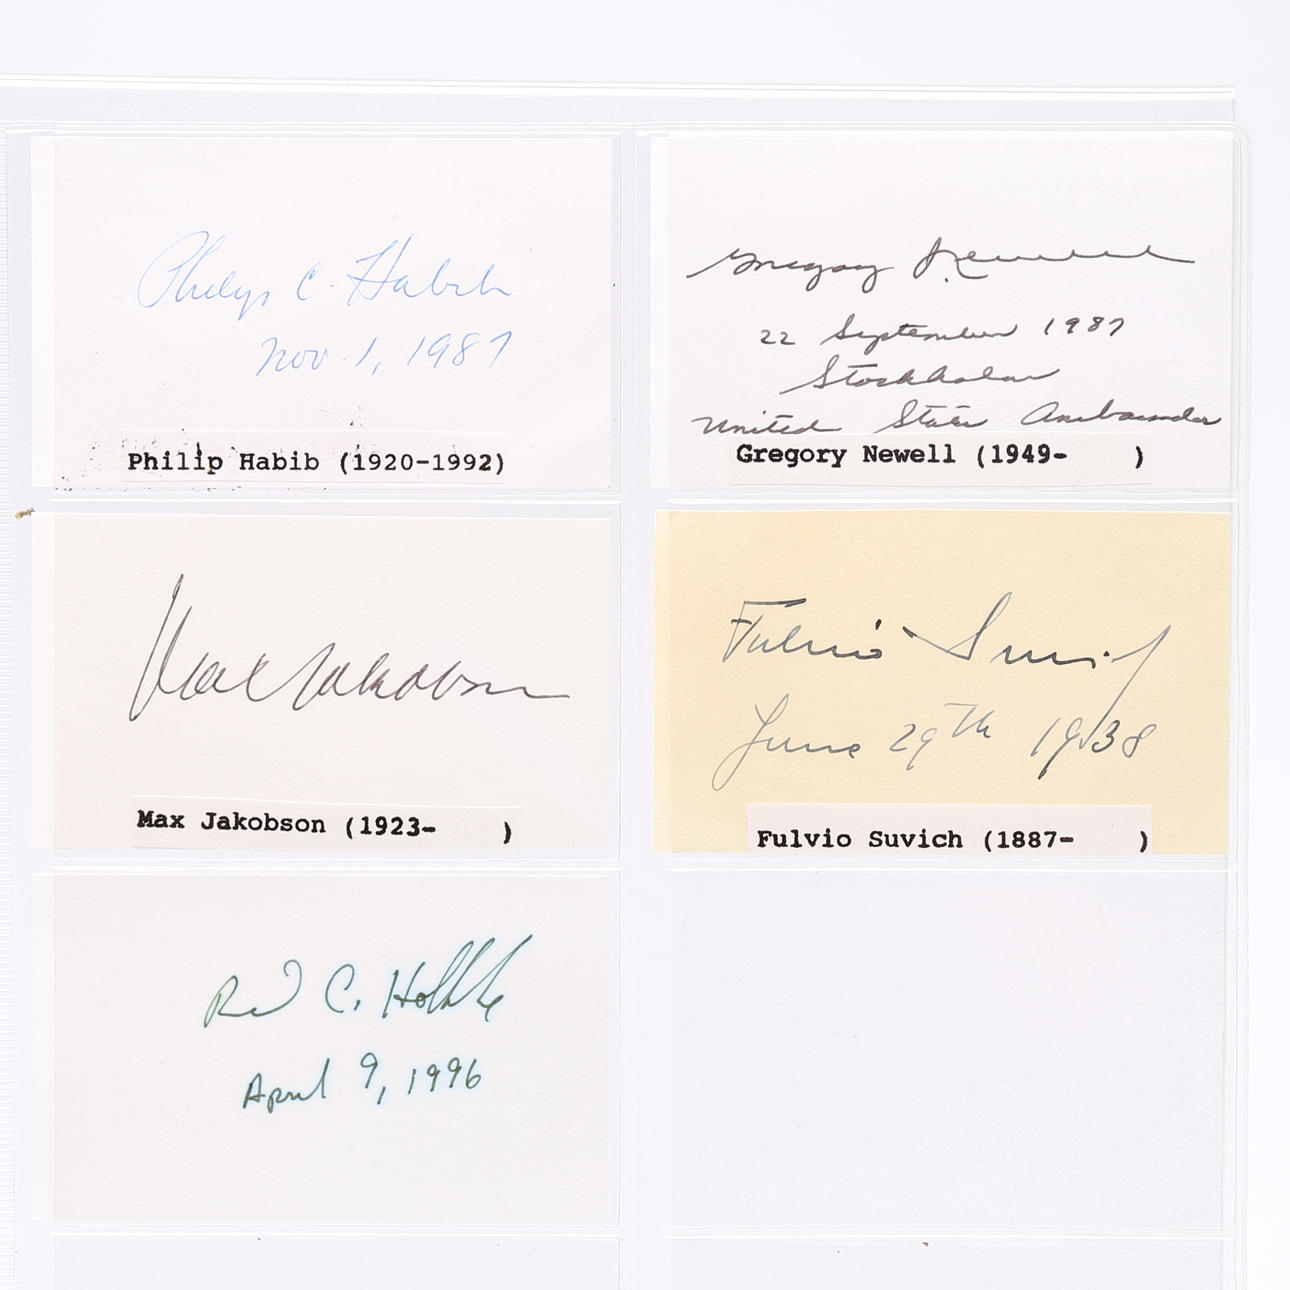 Philip C. Habib
Nov 1, 1987
Philip Habib (1920-1992)
Gregory Newell
22 September 1987
Stockholm
United States Ambassador
Gregory Newell (1949- )
Max Jakobson
Max Jakobson (1923- )
Fulvio Suvich
June 29th 1938
Fulvio Suvich (1887- )
C. Holbrooke
April 9, 1996